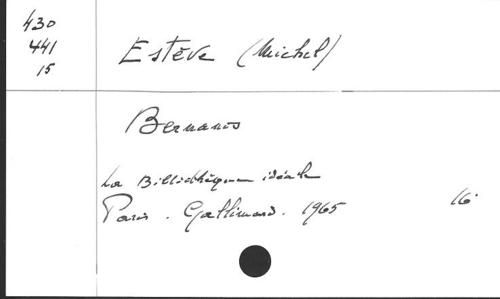 430
441
15
Estève (Michel)
Bernanos
La Bibliothèque idéale
Paris. Gallimard. 1965 16°